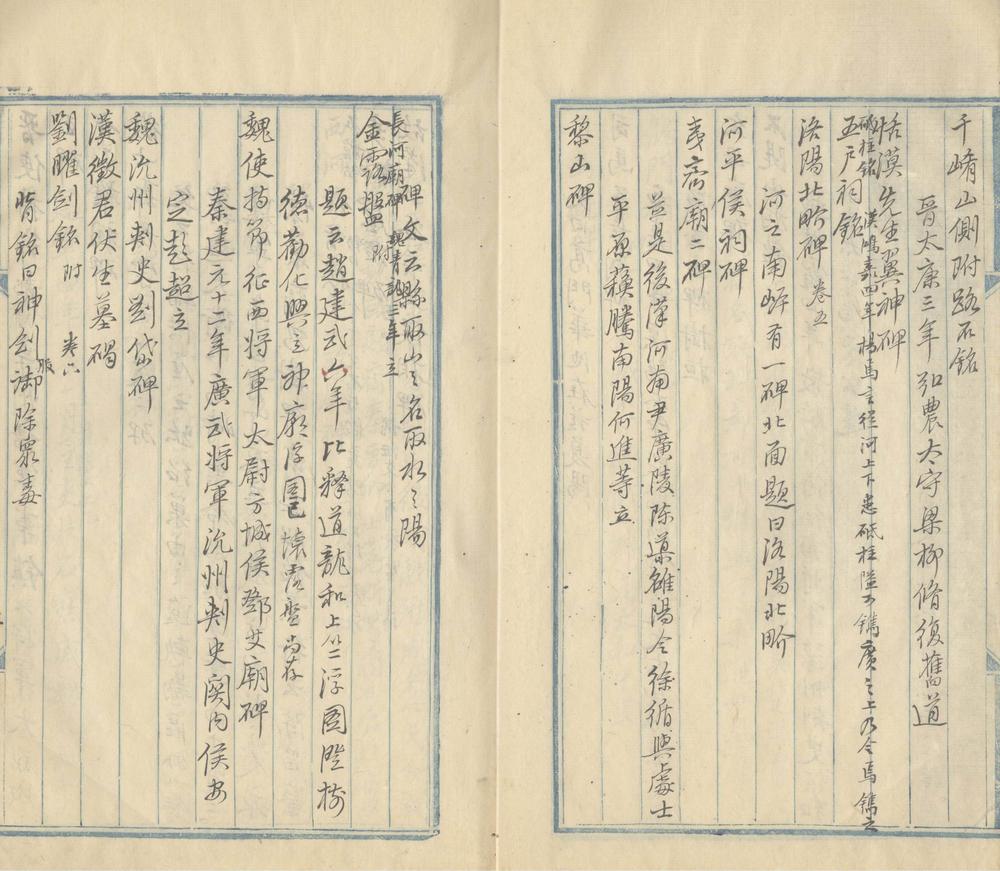 千崤山側附路石銘
晉太康三年弘農太守梁柳脩復舊道
恬漠先生翼神碑
砥柱銘
漢鴻嘉四年楊焉言從河上下患砥柱隘可鐫廣之上乃令焉鐫之
五戶祠銘
洛陽北畍碑 卷五
河之南岸有一碑北面題曰洛陽北畍
河平侯祠碑
夷齊廟二碑
並是後漢河南尹廣陵陳導雒陽令徐循與處士
平原蘇騰南陽何進等立
黎山碑
碑文云縣取山之名取水之陽
長河廟碑 魏青龍三年立
金露盤 附
題云趙建武六年比釋道龍和上竺浮圖澄樹
德勸化興立神廟浮圖已懷露盤尚存
魏使持節征西將軍太尉方城侯鄧艾廟碑
秦建元十二年廣武將軍沇州刺史關內侯安
定彭超立
魏沇州刺史劉岱碑
漢徵君伏生墓碣
劉曜劍銘 附 卷六
背銘曰神劍服御除眾毒